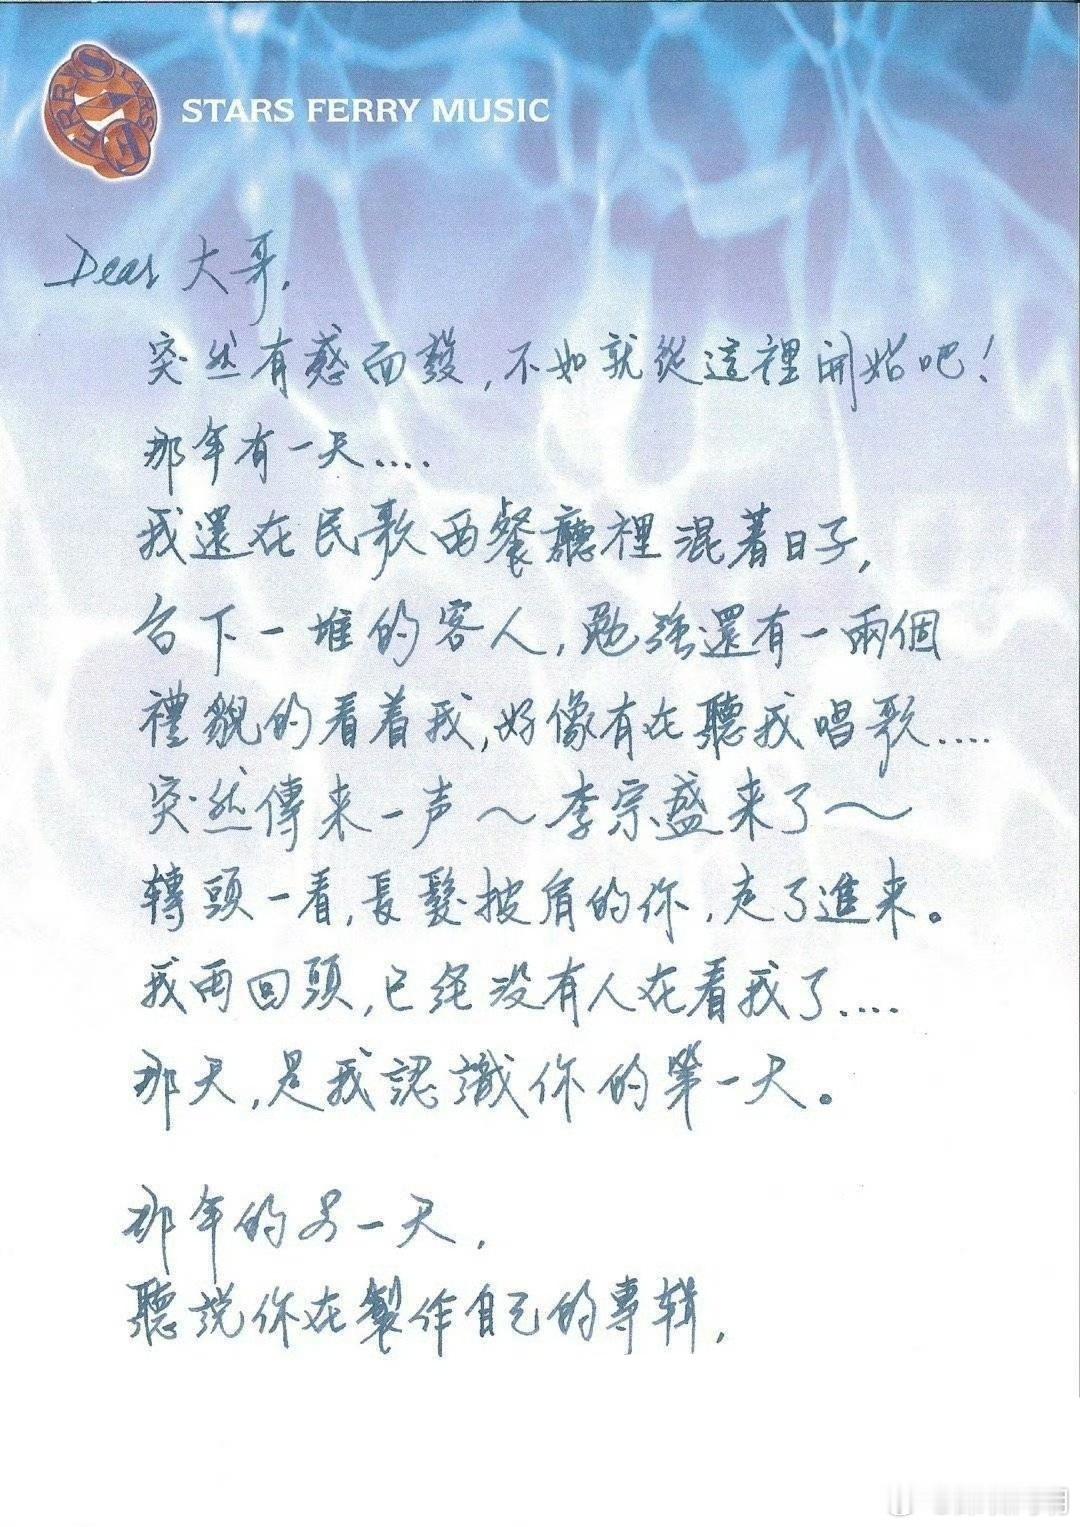 STARS FERRY MUSIC
Dear 大哥,
突然有感而發,不如就從這裡開始吧!
那年有一天....
我還在民歌西餐廳裡混着日子,
台下一堆的客人,勉強還有一兩個
禮貌的看着我,好像有在聽我唱歌....
突然傳来一声~李宗盛来了~
轉頭一看,長髮披肩的你,走了進来。
我再回頭,已經没有人在看我了....
那天,是我認識你的第一天。
那年的另一天,
聽說你在製作自己的專輯,